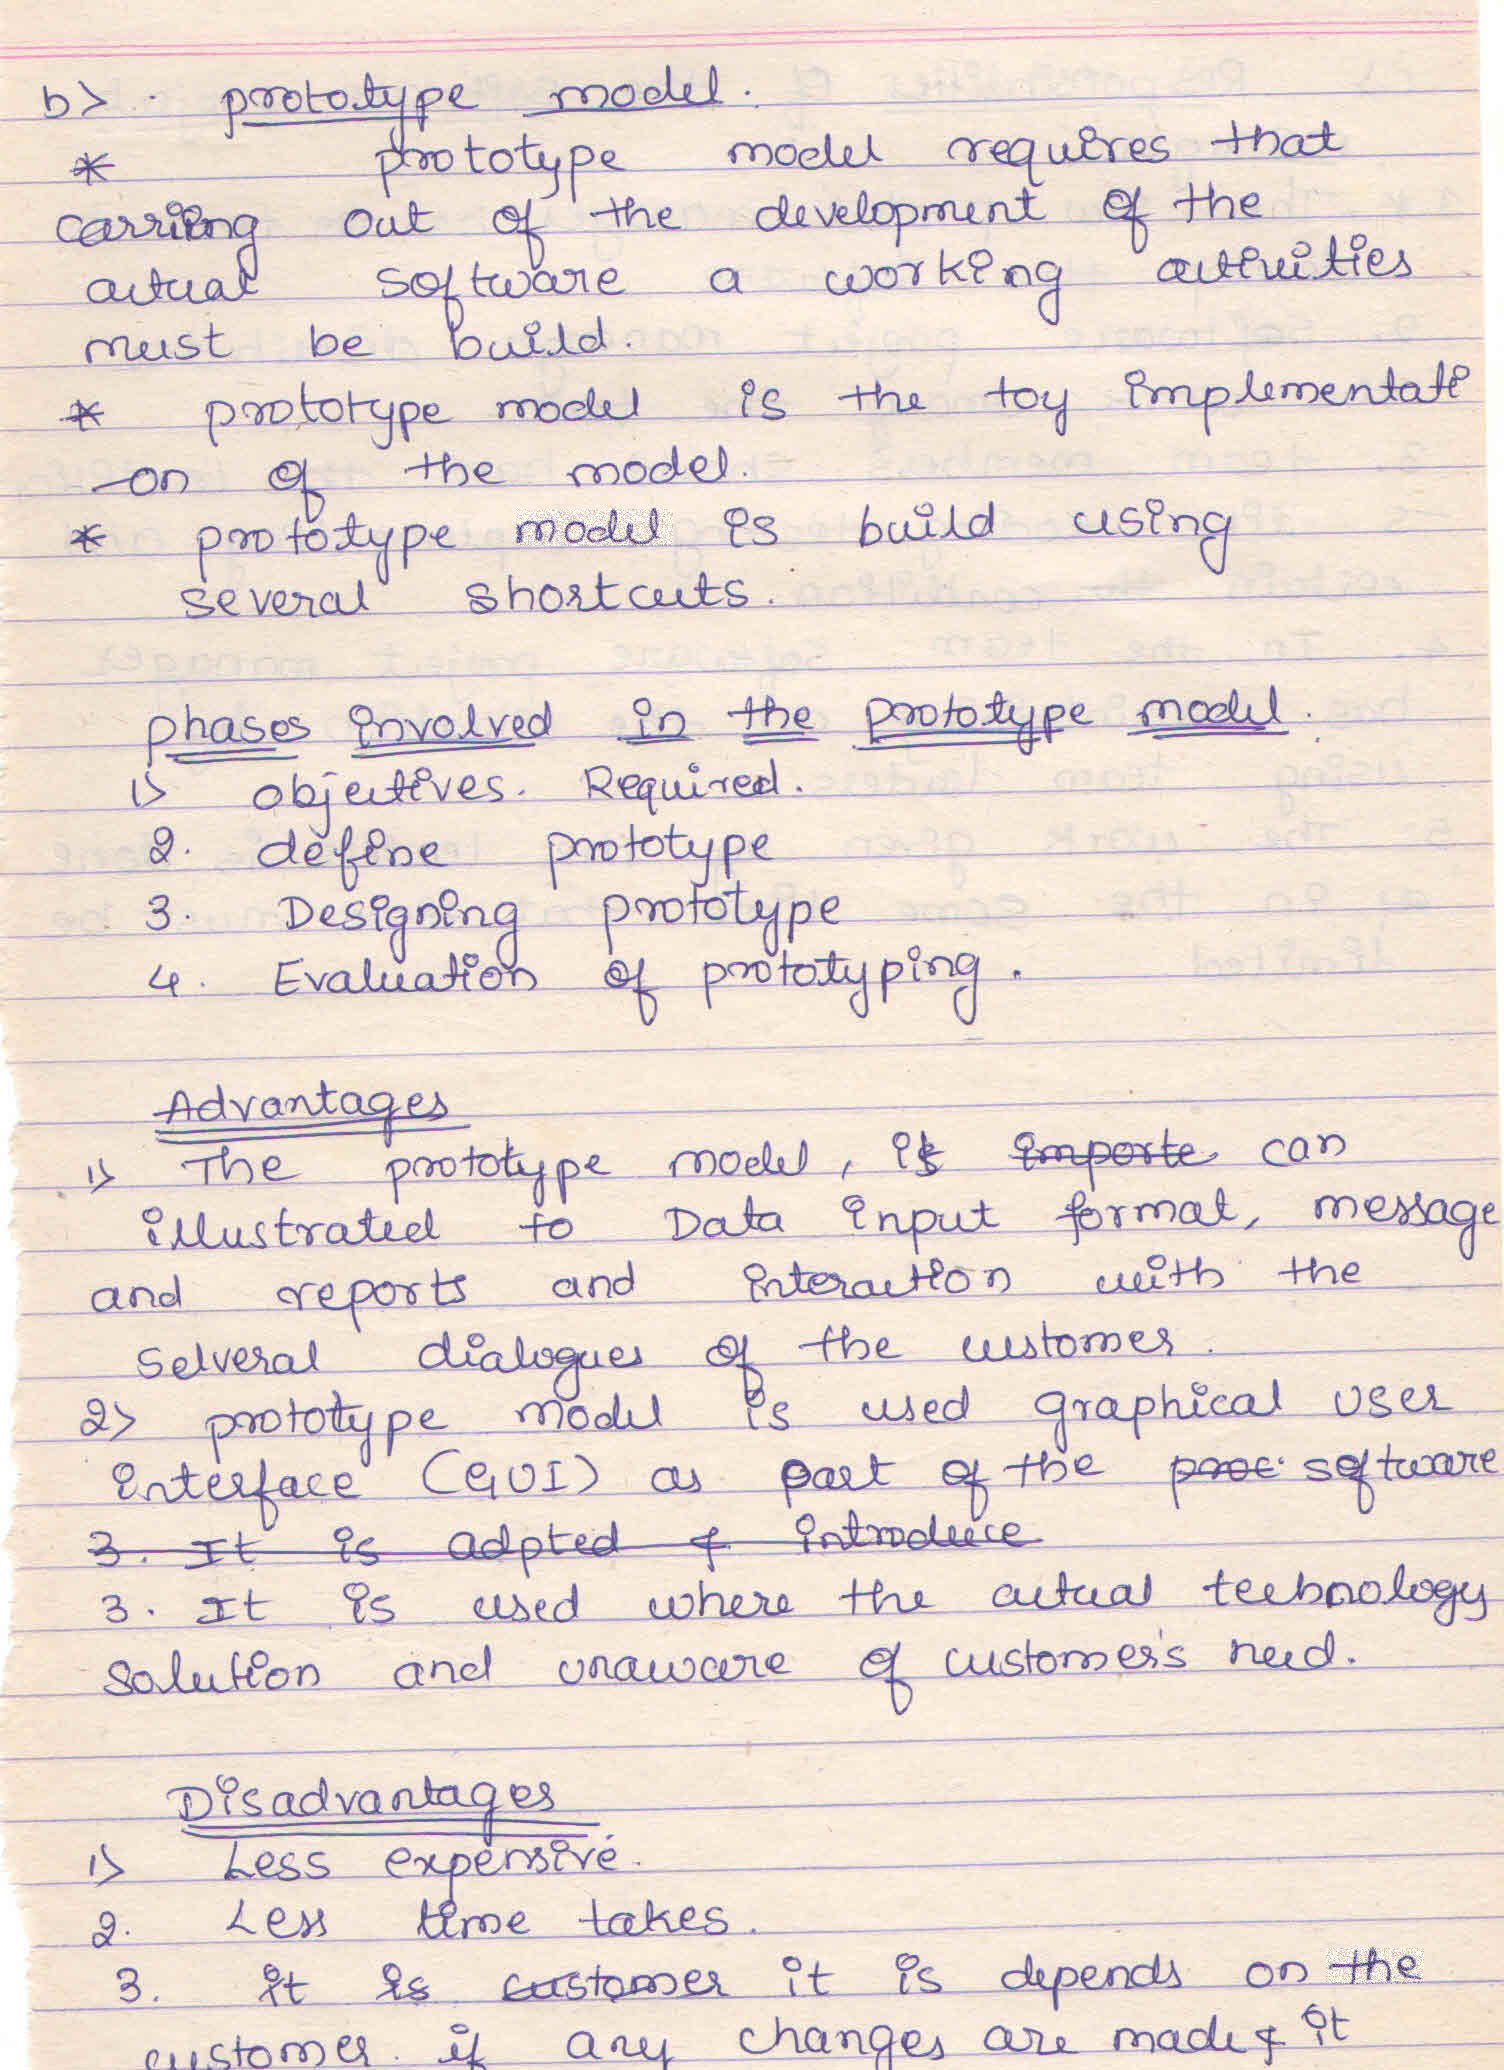 b> prototype model.
* prototype model requires that
carriing out of the development of the
actual software a working activities
must be build.
* prototype model is the toy implementati
-on of the model.
* prototype model is build using
several shortcuts.
phases involved in the prototype model.
1> objectives. Required.
2. define prototype
3. Designing prototype
4. Evaluation of prototyping.
Advantages
1> The prototype model, is importe can
illustrated to Data input format, message
and reports and interaction with the
selveral dialogues of the customer.
2> prototype model is used graphical user
interface (GUI) as part of the proc. software
3. It is adpted & introduce
3. It is used where the actual technology
solution and unaware of customer's need.
Disadvantages
1> Less expensive.
2. Less time takes.
3. it is customer it is depends on the
customer. if any changes are made & it